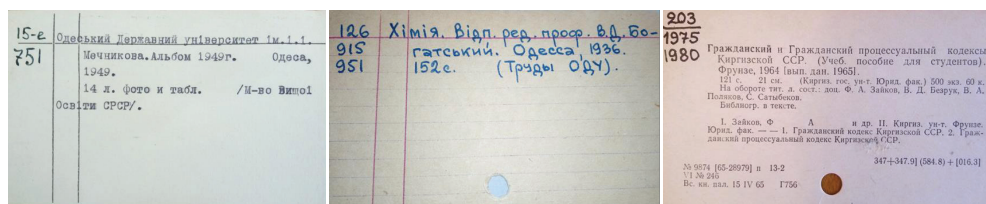 15-е
751
Одеський Державний університет ім.І.І.
Мечникова. Альбом 1949г. Одеса,
1949.
14 л. фото и табл. /М-во Вищої
Освіти СРСР/.
126
915
951
Хімія. Відп. ред. проф. В.Д. Бо-
гатський. Одесса, 1936.
152с. (Труды ОДУ).
203
1975
1980
Гражданский и Гражданский процессуальный кодексы
Киргизской ССР. (Учеб. пособие для студентов).
Фрунзе, 1964 [вып. дан. 1965].
121 с. 21 см. (Киргиз. гос. ун-т. Юрид. фак.) 500 экз. 60 к.
На обороте тит. л. сост.: доц. Ф. А. Зайков, В. Д. Безрук, В. А.
Поляков, С. Сатыбеков.
Библиогр. в тексте.
I. Зайков, Ф А и др. II. Киргиз. ун-т. Фрунзе.
Юрид. фак. — — 1. Гражданский кодекс Киргизской ССР. 2. Граж-
данский процессуальный кодекс Киргизской ССР.
347+347.9] (584.8) + [016.3]
№ 9874 [65-28979] п 13-2
VI № 246
Вс. кн. пал. 15 IV 65 Г756